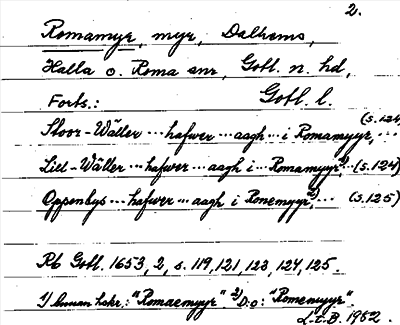 2.
Romamyr, myr, Dalhems,
Halla o. Roma snr, Gotl. n. hd,
Forts.: Gotl. l.
Stoor-Wäller ... hafwer ... aagh ... i Romamyyr,... (s.124)
Lill-Wäller ... hafwer ... aagh i ... Romamyyr¹⁾... (s.124)
Oppenbys ... hafwer ... aagh i Ronemyyr²⁾,... (s.125)
Rb Gotl. 1653, 2, s. 119, 121, 123, 124, 125.
1/ Annan hskr.: "Romaemyyr". ²⁾D:o: "Romemyyr".
L.t.B. 1952.